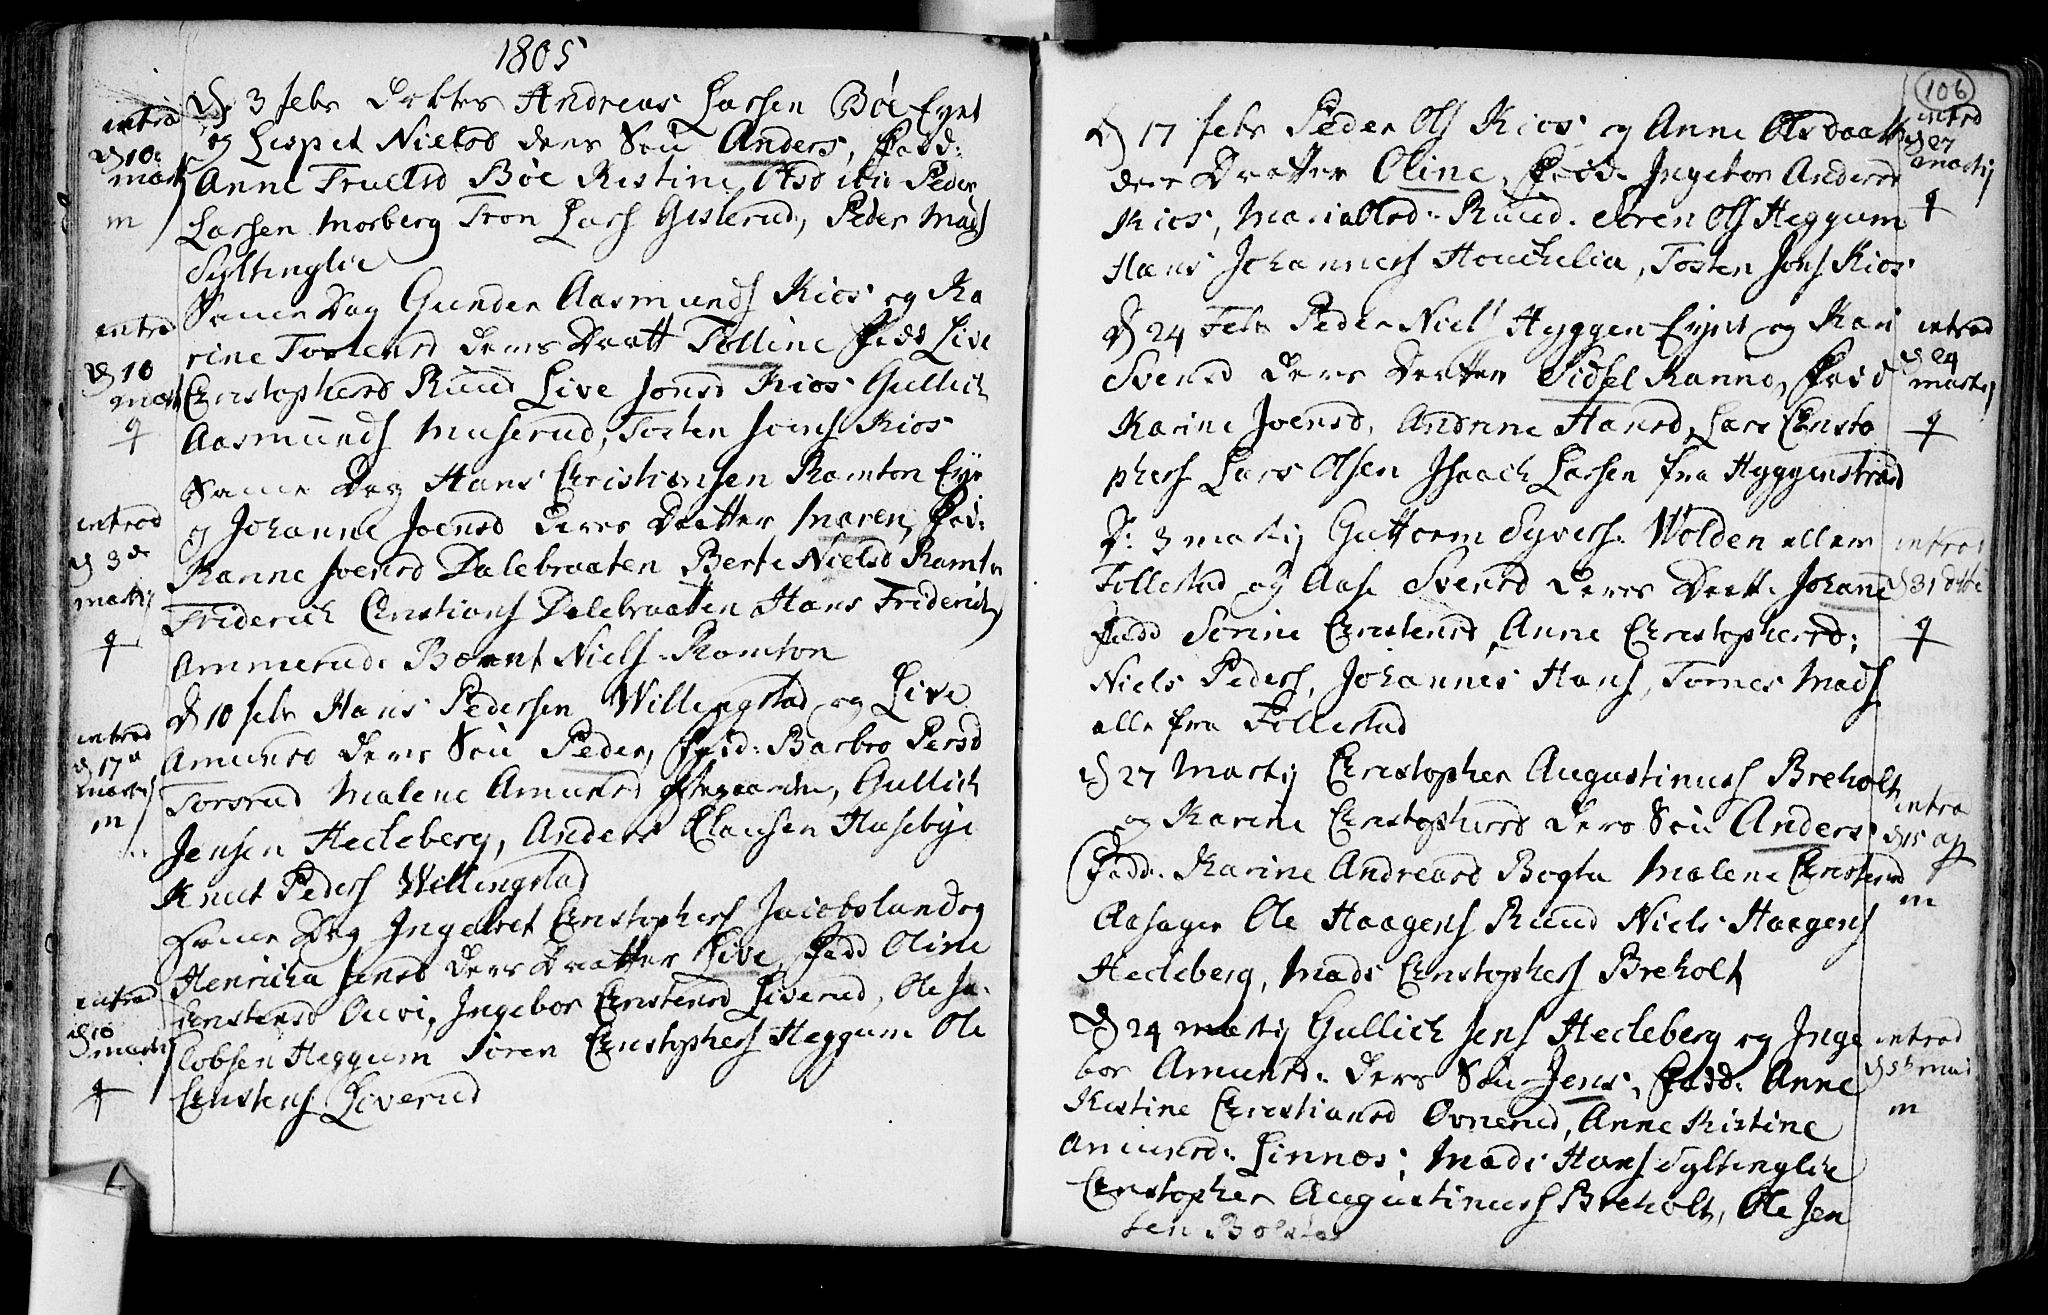 1805
introd
d 10
mart
m
D 3 febr Døbtes Andreas Larsen Böe Eynt
og Lispet Nielsd ders Søn Anders, Fadd:
Anne Truelsd Böe Kistine Olsd ibid Peder
Larsen Morberg Tron Lars Gislerud, Peder Mads
Sÿltinglie
introd
d 10
mart
♀
Samme Dag Gunder Aasmunds Kios og Ka
rine Tostensd ders Daatt Tolline Fadd Live
Christophersd Ruud Live Jonsd Kios Gullich
Aasmunds Muserud, Tosten Jons Kios
introd
d 3de
martij
♀
Samme Dag Hans Christiansen Ramton Eye
og Johanne Joensd deres Daatter Maren, Fad:
Ranne Joensd Dalebraaten Berte Nielsd Ramtn
Friderich Christians Dalebraatten Hans Friderichs
Ammerud Bærnt Niels Ramton
introd
d 17
martij
m
D 10 febr Hans Pedersen Willingstad og Live
Amunsd ders Søn Peder, Fadd: Barbro Persd
Torsrud Malene Amunsd Gullich
Jensen Hecleberg, Anders Clausen Husebÿe
Knut Peders Willingstad
introd
d 10
martij
♀
Samme Dag Ingebret Christophers Jacobslund og
Henricha Jensd ders Daatter Live, Fadd Oline
Christensd Auvi, Ingebor Christensd Liverud, Ole Ja-
cobsen Heggum Sören Christophers Heggum Ole
Christens Liverud
106
D 17 febr Peder Ols Kios og Anne Olsdaatt
ders Daatter Oline, Fadd. Ingebor Andersd
Kios, Maria Olsd Ruud. Sören Ols Heggum
Hans Johanness Houchelia, Tosten Jons Kios
introd
d 27
martij
♀
D 24 Febr Peder Niels Hyggen Eÿnt og Kari
Svensd ders Daatter Sidsel Ranne, Fadd
Karine Joensd, Andrine Hansd, Lars Christo
phers Lars Olsen Isaach Larsen fra Hyggenstrand
introd
d 24
martij
♀
D: 3 martij Guttorm Syvers. Wolden allem
Follestad og Aase Svensd deres Daatt. Johane
Fadd Sorine Christensd, Anne Christophersd:
Niels Peders, Johannes Hans, Tornes Mads
alle fra Follestad
introd
d 31 dtte
♀
D 27 Martij Christopher Augustinuss Breholt
og Karine Christophersd ders Søn Anders
Fadd. Karine Andreasd Bogta Malene Christensd
Aasager Ole Haagens Ruud Niels Haagens
Hecleberg, Mads Christophers Breholt
introd
d 15 ap
m
D 24 martij Gullich Jens Hecleberg og Inge
bor Amunsd. ders Søn Jens, Fadd: Anne
Kistine Christiansd Ovnerud, Anne Kistine
Amunsd. Linnes, Mads Hans Sÿltinglie
Christopher Augustinuss Breholt, Ole Jen
sen Bölstad
introd
d 5 maii
m